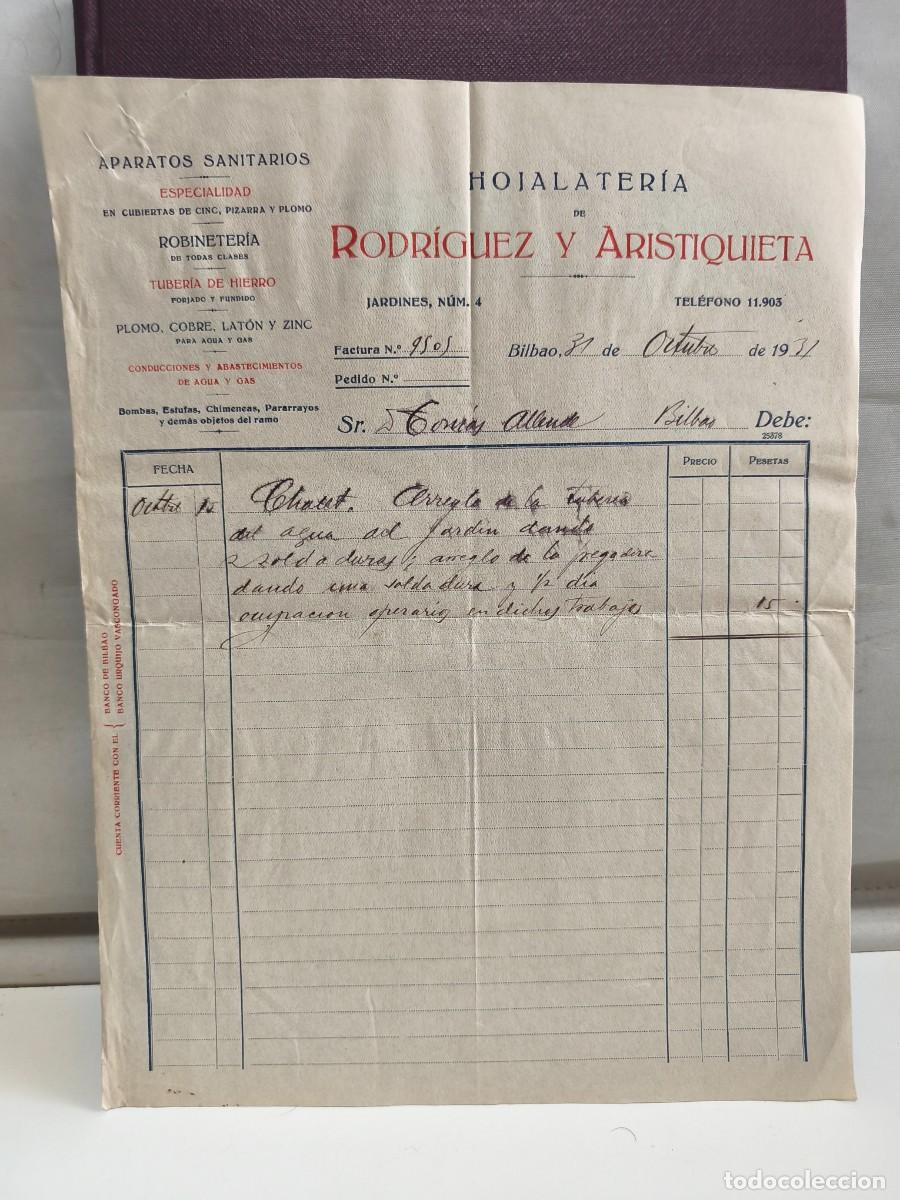 APARATOS SANITARIOS
ESPECIALIDAD
EN CUBIERTAS DE CINC, PIZARRA Y PLOMO
ROBINETERÍA
DE TODAS CLASES
TUBERÍA DE HIERRO
FORJADO Y FUNDIDO
PLOMO, COBRE, LATÓN Y ZINC
PARA AGUA Y GAS
CONDUCCIONES Y ABASTECIMIENTOS
DE AGUA Y GAS
Bombas, Estufas, Chimeneas, Pararrayos
y demás objetos del ramo
HOJALATERÍA
DE
RODRÍGUEZ Y ARISTIQUIETA
JARDINES, NÚM. 4
TELÉFONO 11.903
Factura N.º 9505
Bilbao, 31 de Octubre de 1931
Pedido N.º
Sr. D Tomás Allende Bilbao Debe:
25378
FECHA
PRECIO
PESETAS
Octbre Chalet. Arreglo de la tuberia
del agua del jardin dando
2 soldaduras; arreglo de la fregadera
dando una soldadura y 1/2 dia
ocupacion operario en dichos trabajos 15
CUENTA CORRIENTE CON EL { BANCO DE BILBAO
BANCO URQUIJO VASCONGADO
todocoleccion